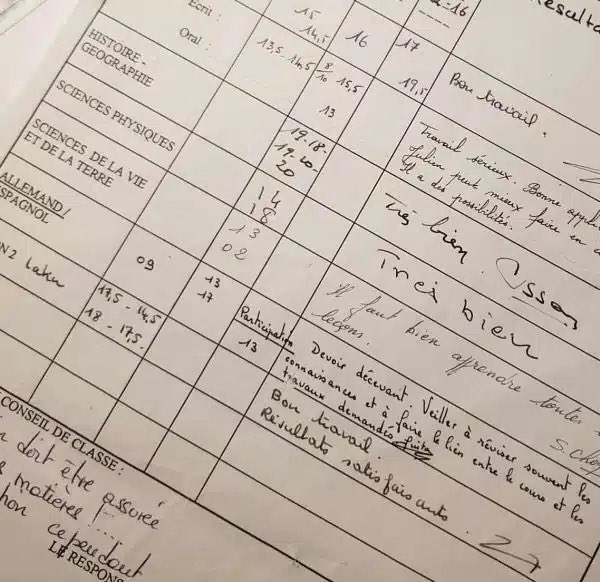 Ecrit :
Oral :
15
14,5
16
17
=16
13,5 - 14,5
8/10
15,5
19,5
Bon travail.
HISTOIRE -
GEOGRAPHIE
13
Travail sérieux. Bonne
Julien peut mieux faire en
Il a des possibilités.
SCIENCES PHYSIQUES
19 - 18 -
19 - 20 -
20
Très bien.
SCIENCES DE LA VIE
ET DE LA TERRE
14
18
Très bien
ALLEMAND /
ESPAGNOL
09
13
02
Il faut bien apprendre toutes
leçons.
N2 Latin
17,5 - 14,5
18 - 17,5
13
17
Participation
13
Devoir décevant. Veiller à réviser souvent les
connaissances et à faire le lien entre le cours et les
travaux demandés
Bon travail.
Résultats satisfaisants.
CONSEIL DE CLASSE :
doit être assurée
matières
cependant
LE RESPONS